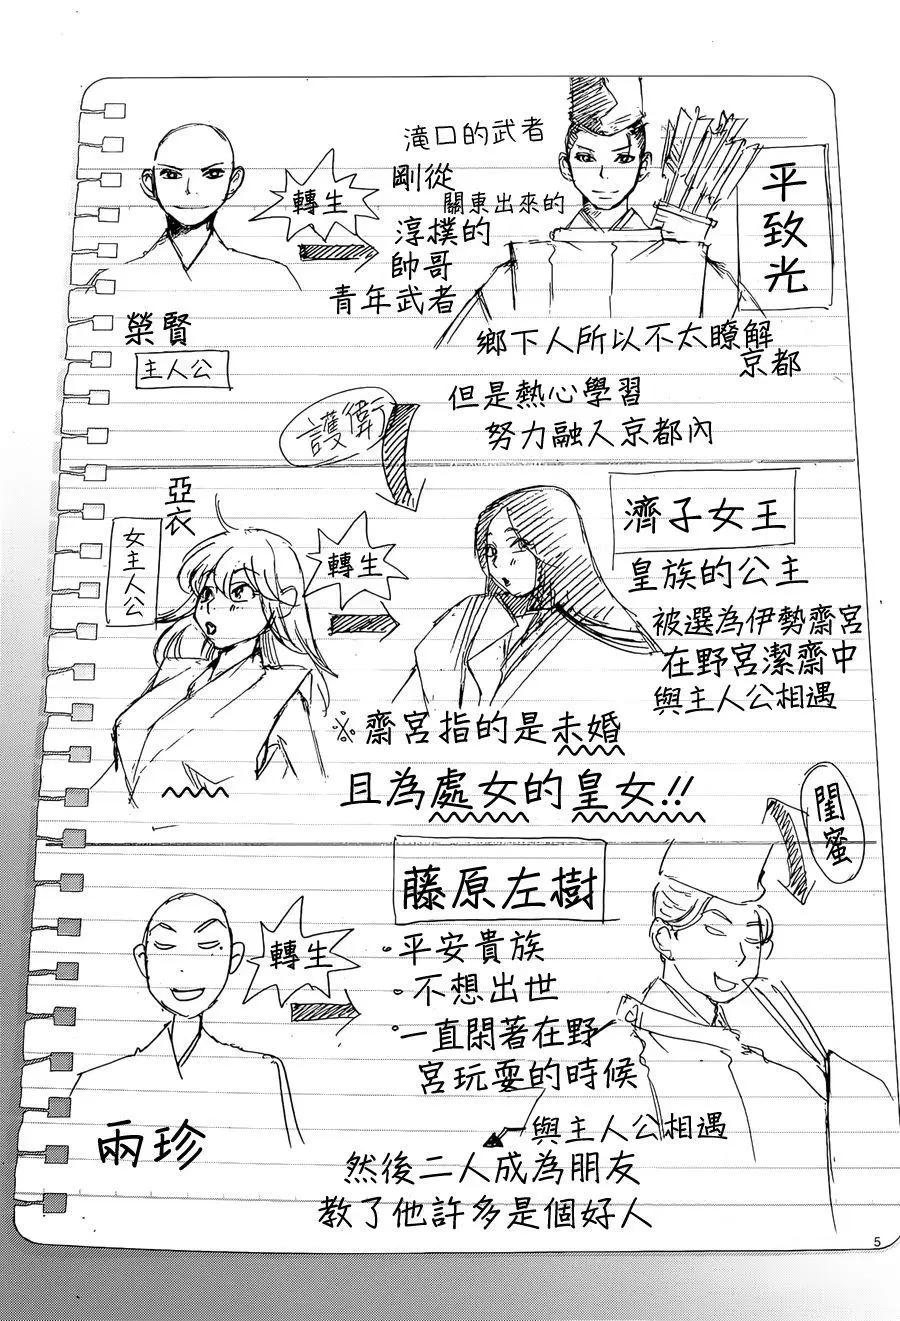 榮賢
主人公
轉生
滝口的武者
剛從
關東出來的
淳撲的
帥哥
青年武者
平致光
鄉下人所以不太瞭解
京都
但是熱心學習
努力融入京都內
護衛
亞衣
女主人公
轉生
濟子女王
皇族的公主
被選為伊勢齋宮
在野宮潔齋中
與主人公相遇
※齋宮指的是未婚
且為處女的皇女!!
閨蜜
兩珍
轉生
藤原左樹
•平安貴族
•不想出世
•一直閑著在野
宮玩耍的時候
與主人公相遇
然後二人成為朋友
教了他許多是個好人
5